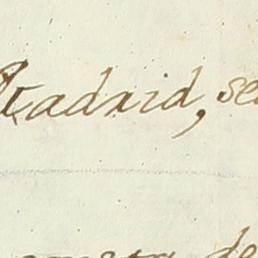 Madrid, se
de